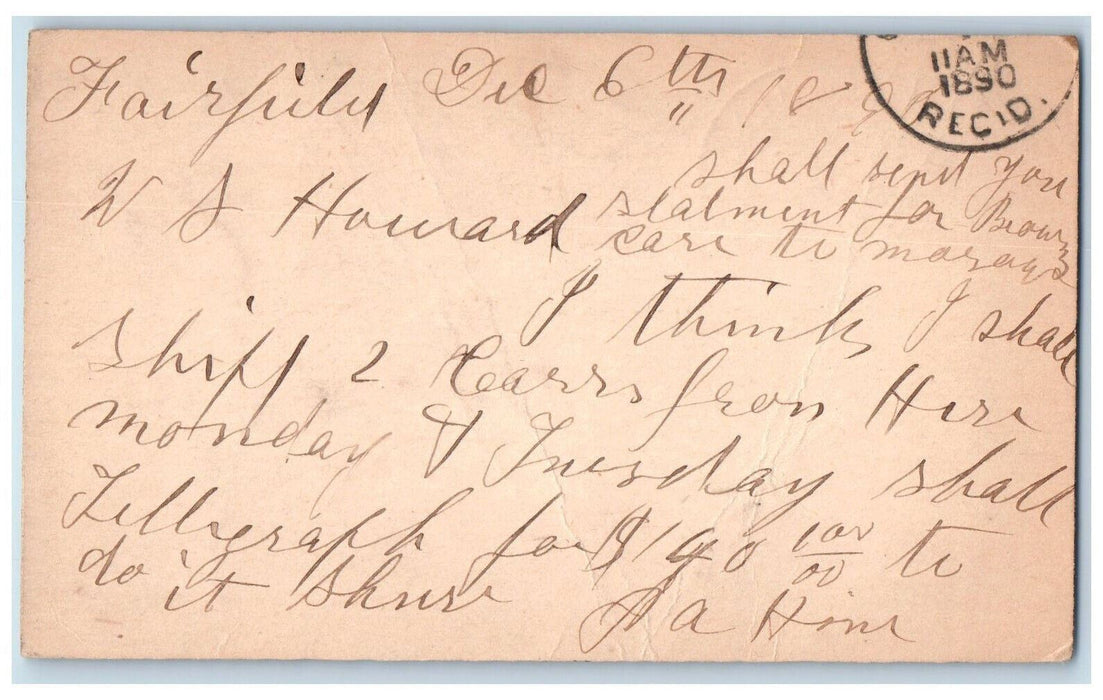 Fairfield Dec 6th 1890
11AM
1890
REC'D.
W S Howard
shall send you
statment for Beowns
care to
I think I shall
shipp 2 Carrs from Here
monday & Tuesday shall
Tellegraph for $140 100/00 to
do it shure
A Hine